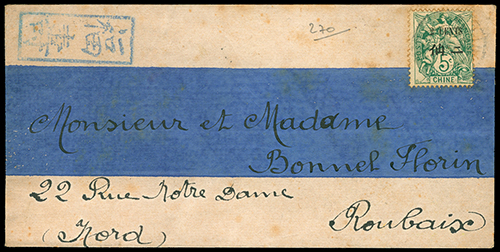 270
2 CENTS
仙二
5c
CHINE
Monsieur et Madame
Bonnel Florin
22 Rue Notre Dame
(Nord) Roubaix